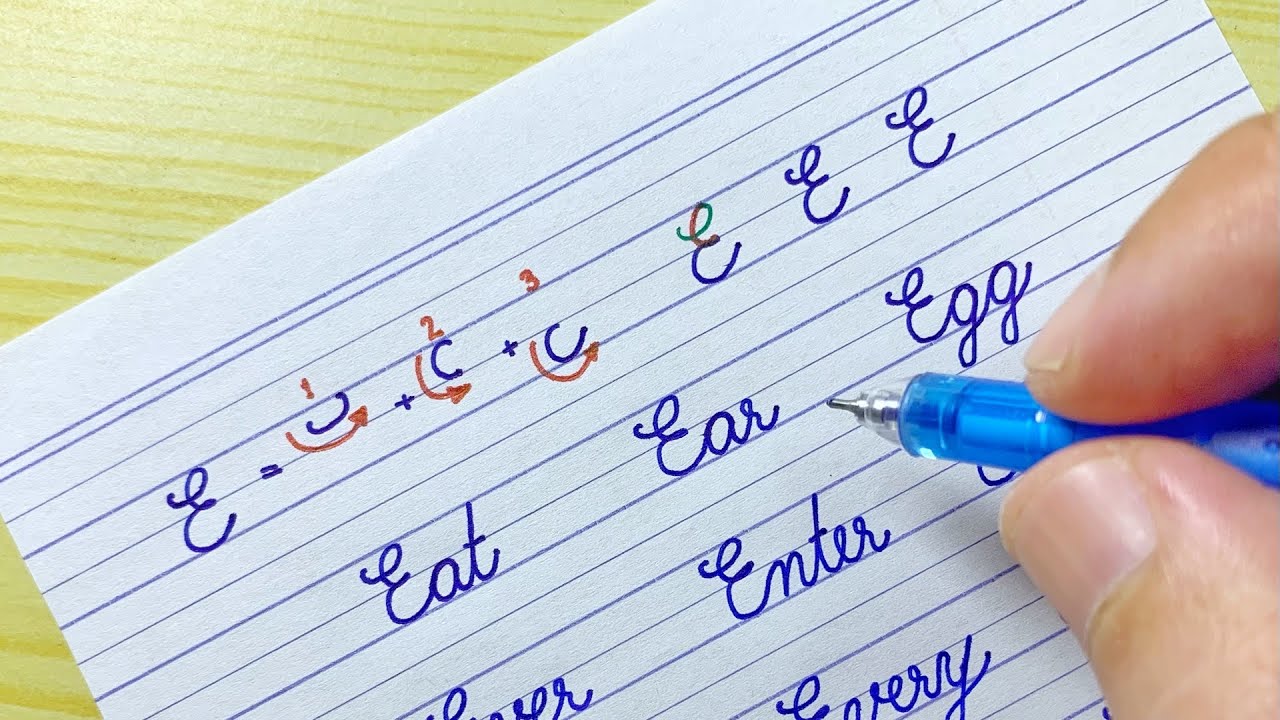 E = 1 + 2 + 3 E E E
Eat Ear Egg
Enter
Every